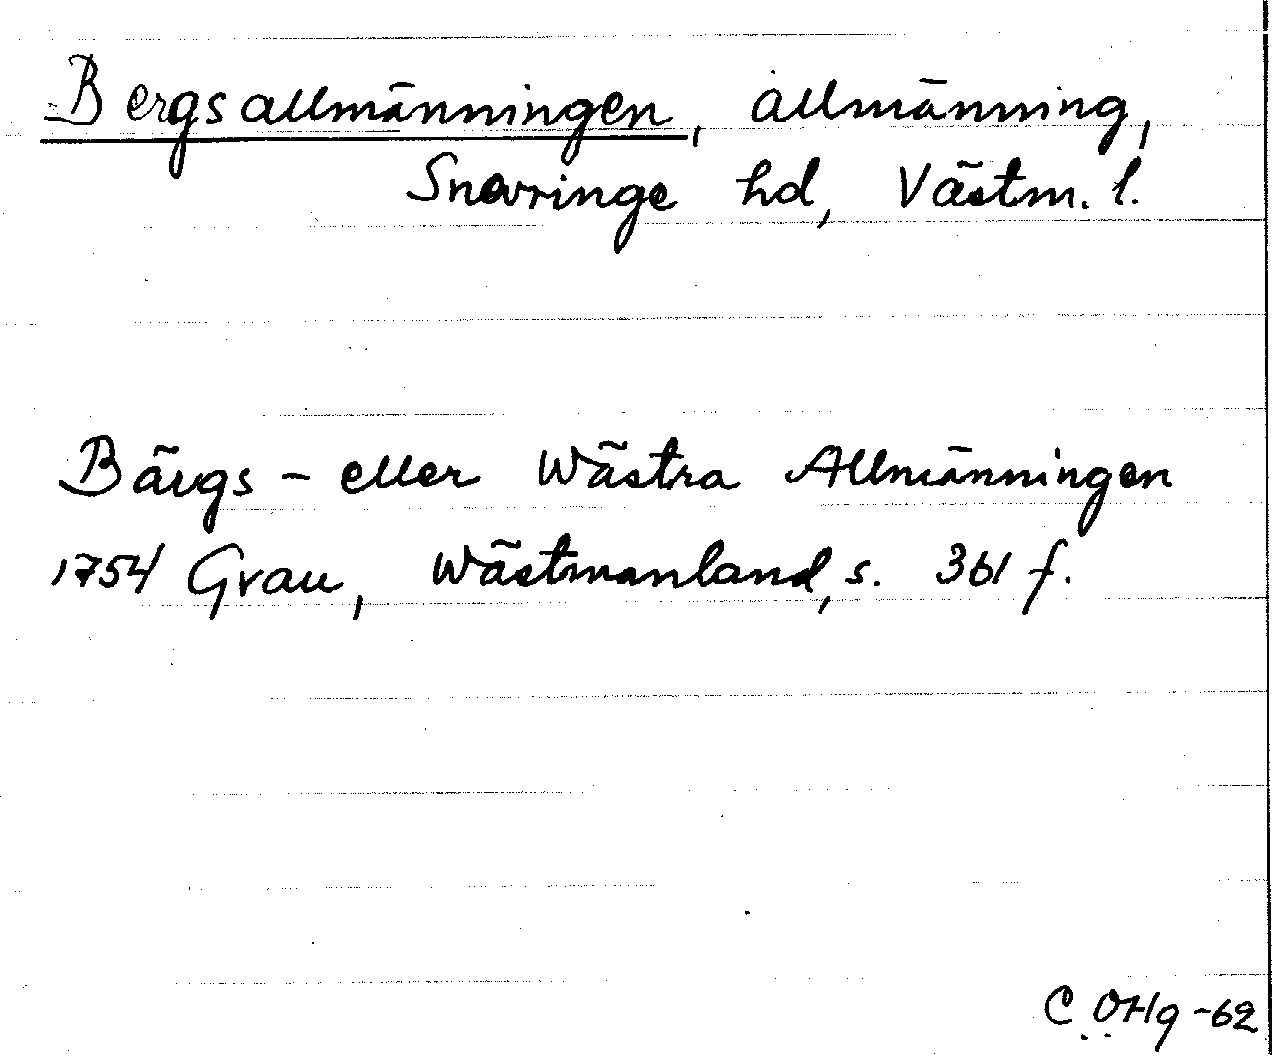 Bergsallmänningen, allmänning,
Snevringe hd, Västm. l.
Bärgs - eller Wästra Allmänningen
1754 Grau, Wästmanland, s. 361 f.
C OHg -62